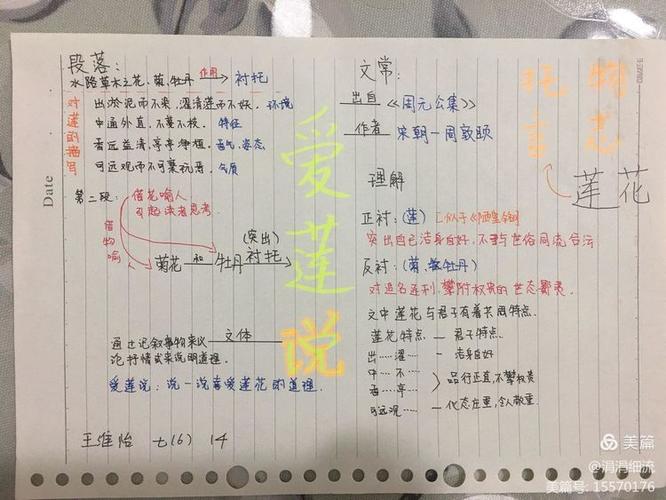 段落：
水陆草木之花，菊，牡丹 作用 衬托
对莲的描写
出淤泥而不染，濯清莲而不妖，环境
中通外直，不蔓不枝，特征
香远益清，亭亭净植，香气，姿态
可远观而不可亵玩焉，气质
第二段：借花喻人
引起读者思考。
借物喻人
菊花 和 牡丹 (突出) 衬托
文体
通过记叙事物来议
论抒情或来说明道理。
爱莲说：说一说喜爱莲花的道理。
王维怡 七(6) 14
爱莲说
文常：
出自 《周元公集》
作者 宋朝一周敦颐
托物言志
莲花
理解
正衬：(莲)
突出自己洁身自好，不与世俗同流合污
反衬：(菊、牡丹)
对追名逐利，攀附权贵的世态鄙夷。
文中莲花与君子有着共同特点。
莲花特点 — 君子特点
出……濯…… — 洁身自好
中……不……
香……亭…… 品行正直，不攀权贵
可远观…… — 仪态庄重，令人敬重
Date
美篇
@涓涓细流
美篇号：15570176